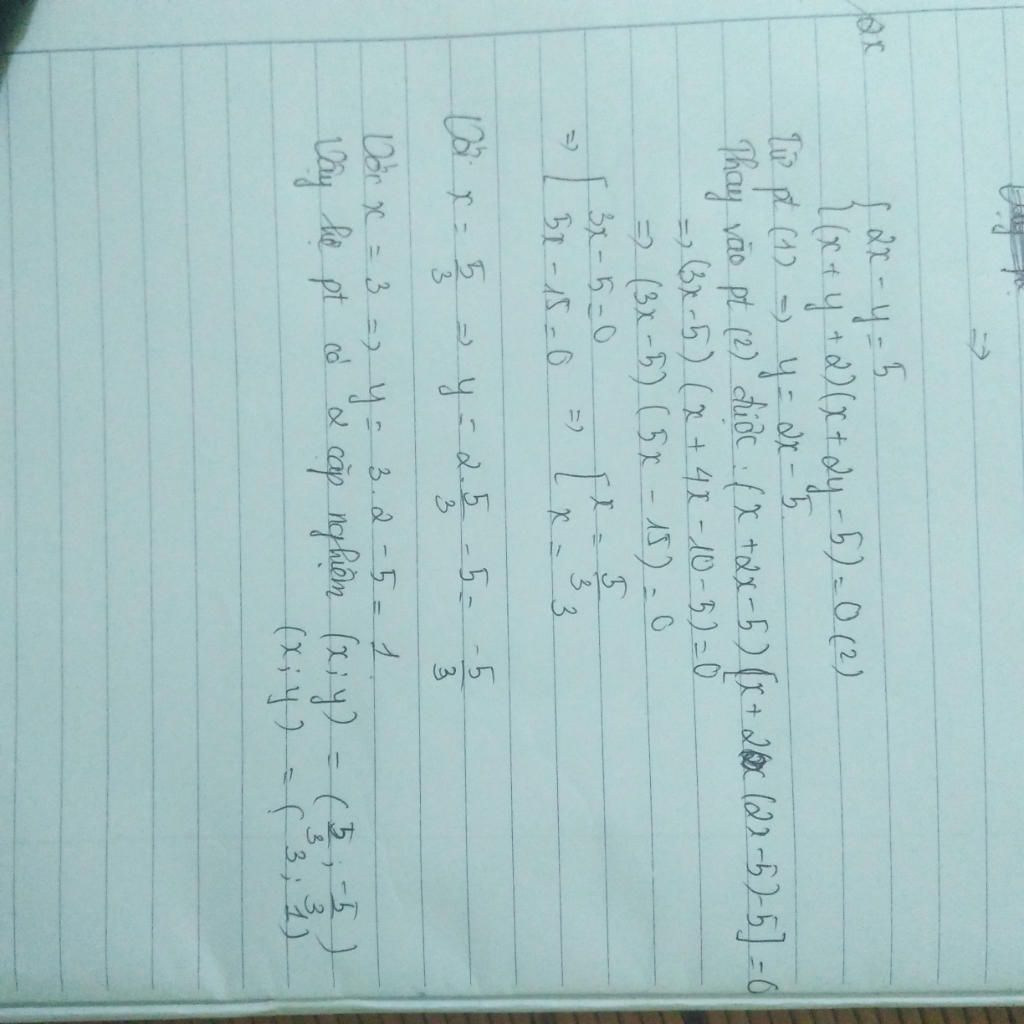 ⇒
2x
{ 2x - y = 5
{ (x + y + 2)(x + 2y - 5) = 0 (2)
Từ pt (1) ⇒ y = 2x - 5
Thay vào pt (2) được: (x + 2x - 5)[x + 2x(2x - 5) - 5] = 0
⇒ (3x - 5)(x + 4x - 10 - 5) = 0
⇒ (3x - 5)(5x - 15) = 0
⇒ [ 3x - 5 = 0 ⇒ [ x = 5/3
[ 5x - 15 = 0 [ x = 3
Với x = 5/3 ⇒ y = 2.5/3 - 5 = -5/3
Với x = 3 ⇒ y = 3.2 - 5 = 1
Vậy hệ pt có 2 cặp nghiệm (x; y) = (5/3; -5/3)
(x; y) = (3; 1)